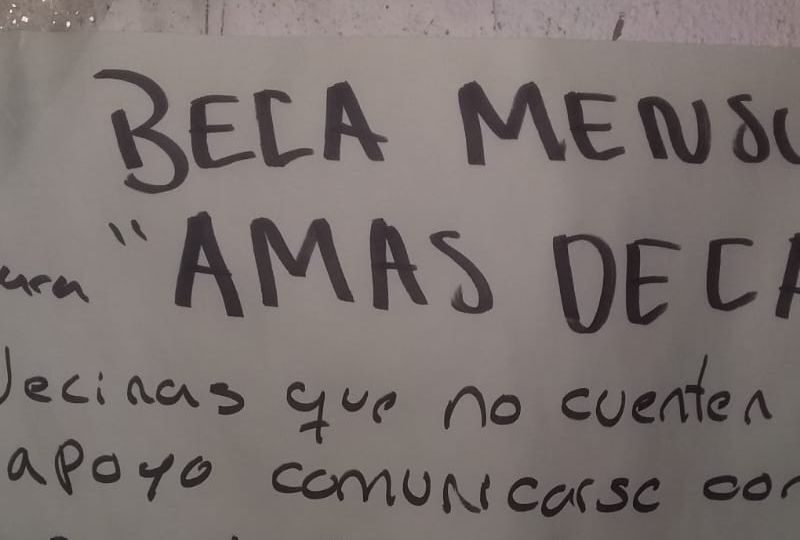 BECA MENSU
"AMAS DE CA
vecinas que no cuenten
apoyo comunicarse con